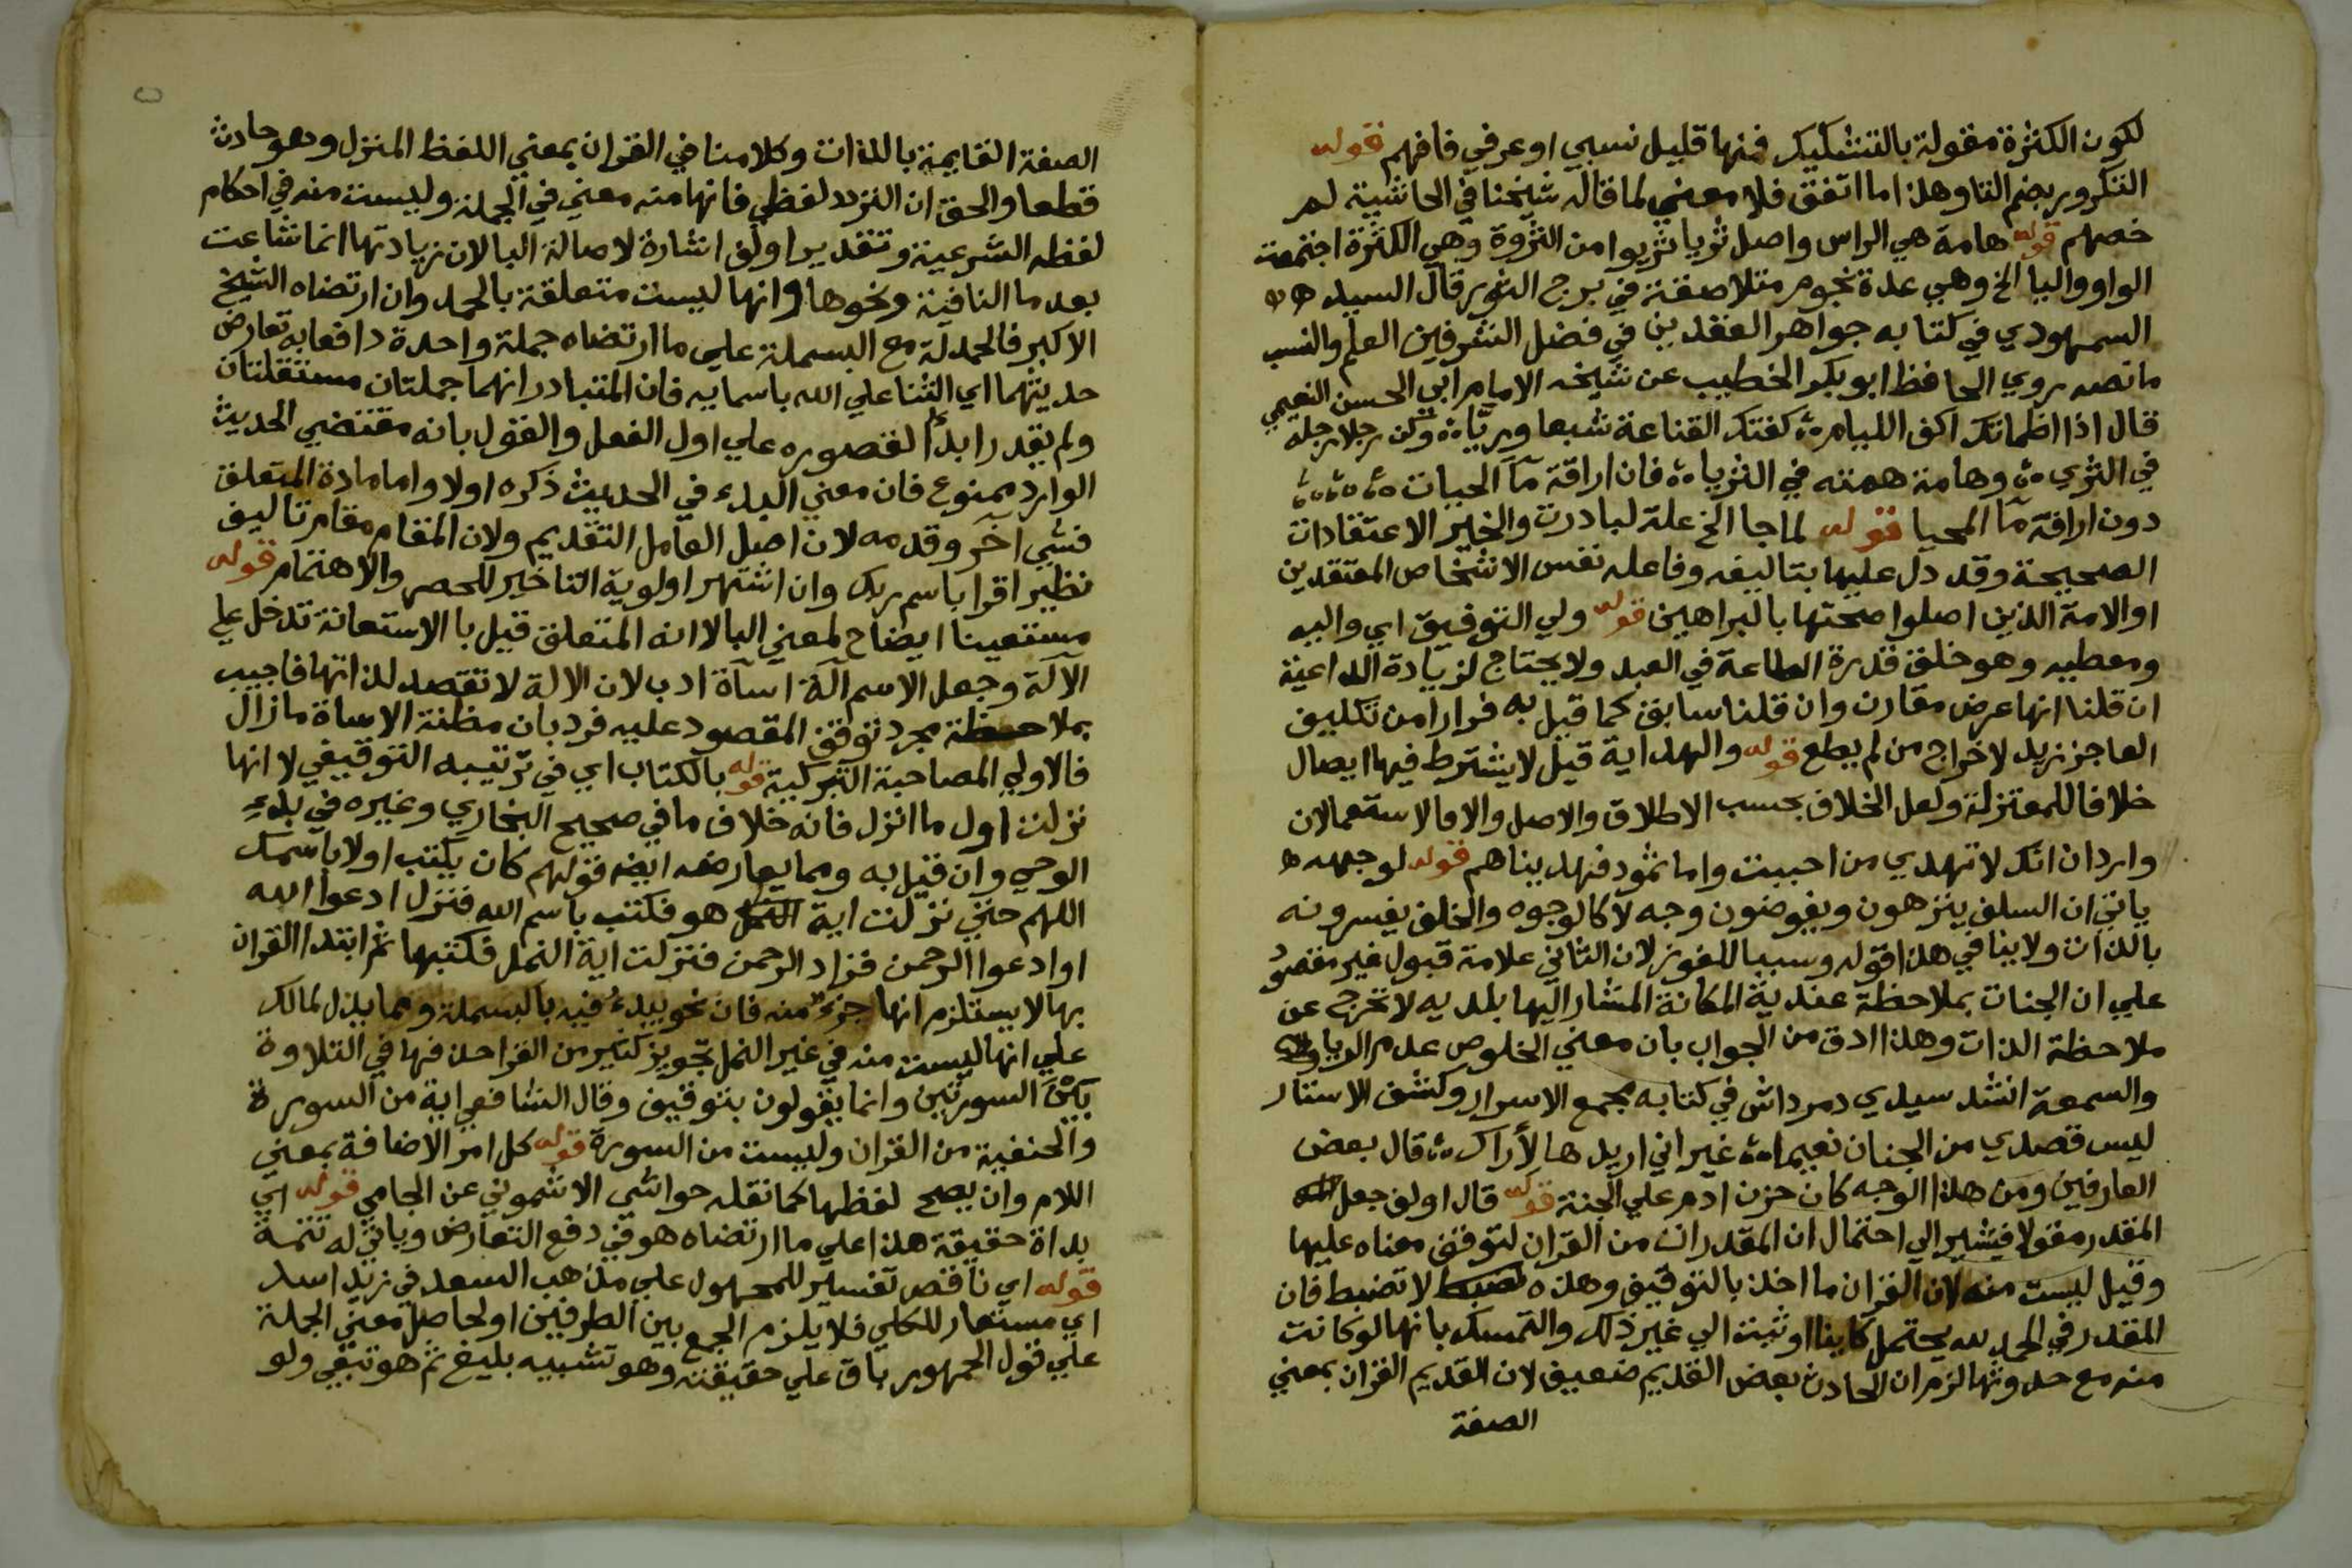 لكون الكثرة مقولة بالتشكيك فنها قليل نسبي او عرفي فافهم قوله
التكرور بضم التا وهذا ما اتفق فلا معني لما قال شيخنا في الحاشية لم
خصهم قوله هامة هي الراس واصل ثريا ثريوا من الثروة وهي الكثرة اجتمعت
الواو واليا الخ وهي عدة نجوم متلاصقة في برج الثور قال السيد
السمهودي في كتابه جواهر العقدين في فضل الشرفين العلم والنسب
ما نصه روي الحافظ ابو بكر الخطيب عن شيخه الامام ابي الحسن النعيمي
قال اذا اظماتك اكف الليام كفتك القناعة شبعا وريّا وكن رجلا رجله
في الثري وهامة همته في الثريا فان اراقة مآ الحيات
دون اراقة مآ المحيا قوله لما جا الخ علة لبادرت والخير الاعتقادات
الصحيحة وقد دل عليها بتاليفه وفاعله نفس الاشخاص المعتقدين
او الامة الذين اصلوا صحتها بالبراهين قوله ولي التوفيق اي واليه
ومعطيه وهو خلق قدرة الطاعة في العبد ولا يحتاج لزيادة الداعية
ان قلنا انها عرض مقارن وان قلنا سابق كما قيل به فرارا من تكليف
العاجز زيد لاخراج من لم يطع قوله والهداية قيل لا يشترط فيها ايصال
خلافا للمعتزلة ولعل الخلاف بحسب الاطلاق والاصل والا فالاستعمالان
واردان انك لا تهدي من احببت واما ثمود فهديناهم قوله لوجهه
ياتي ان السلف ينزهون ويفوضون وجه لا كالوجوه والخلف يفسرونه
بالذات ولا ينافي هذا قوله وسببا للفوز لان الثاني علامة قبول غير مقصود
علي ان الجنات بملاحظة عندية المكانة المشار اليها بلديه لا تخرج عن
ملاحظة الذات وهذا ادق من الجواب بان معني الخلوص عدم الريا
والسمعة انشد سيدي دمرداش في كتابه مجمع الاسرار وكشف الاستار
ليس قصدي من الجنان نعيما غير اني اريدها لأراك قال بعض
العارفين ومن هذا الوجه كان حزن ادم علي الجنة قوله قال اولف جعل
المقدر مقولا فيشير الي احتمال ان المقدرات من القران لتوقف معناه عليها
وقيل ليست منه لان القران ما اخذ بالتوقيف وهذه لا تضبط فان
المقدر في الحمد لله يحتمل كاينا او ثبت الي غير ذلك والتمسك بانها لو كانت
منه مع حدوثها لزم ان الحادث بعض القديم ضعيف لان القديم القران بمعني
الصفة
الصفة القايمة بالذات وكلامنا في القران بمعني اللفظ المنزل وهو حادث
قطعا والحق ان التردد لفظي فانها منه معني في الجملة وليست منه في احكام
لفظه الشرعية وتقدير اولف اشارة لاصالة البا لان زيادتها انما شاعت
بعد ما النافية ونحوها وانها ليست متعلقة بالحمد وان ارتضاه الشيخ
الاكبر فالحمدلة مع البسملة علي ما ارتضاه جملة واحدة دافعا به تعارض
حديثهما اي الثنا علي الله باسمايه فان المتبادر انهما جملتان مستقلتان
ولم يقدر ابدأ لقصوره علي اول الفعل والقول بانه مقتضي الحديث
الوارد ممنوع فان معني البدء في الحديث ذكره اولا واما مادة المتعلق
فشي اخر وقدمه لان اصل العامل التقديم ولان المقام مقام تاليف
نظير اقرا باسم ربك وان اشتهر اولوية التاخير للحصر والاهتمام قوله
مستعينا ايضاح لمعني البا لا انه المتعلق قيل با الاستعانة تدخل علي
الآلة وجعل الاسم آلة اسآة ادب لان الالة لا تقصد لذاتها فاجيب
بملاحظة مجرد توقف المقصود عليه فرد بان مظنة الاساة ما زال
فالاولي المصاحبة التبركية قوله بالكتاب اي في ترتيبه التوقيفي لا انها
نزلت اول ما انزل فانه خلاف ما في صحيح البخاري وغيره في بدء
الوحي وان قيل به ومما يعارضه ايضه قولهم كان يكتب اولا باسمك
اللهم حتي نزلت اية هو فكتب باسم الله فنزل ادعوا الله
او ادعوا الرحمن فزاد الرحمن فنزلت اية النمل فكتبها ثم ابتدا القران
بها لا يستلزم انها جزء منه فان نحو يبدء فيه بالبسملة ومما يدل لمالك
علي انها ليست منه في غير النمل تجويز كثير من القرا حذفها في التلاوة
بين السورتين وانما يقولون بتوقيف وقال الشافعي اية من السورة
والحنفية من القران وليست من السورة قوله كل امر الاضافة بمعني
اللام وان يصح لفظها كما نقله حواشي الاشموني عن الجامي قوله اي
بداة حقيقة هذا علي ما ارتضاه هو في دفع التعارض وياتي له تتمة
قوله اي ناقص تفسير للمجهول علي مذهب السعد في زيد اسد
اي مستعار للكلي فلا يلزم الجمع بين الطرفين او لحاصل معني الجملة
علي قول الجمهور باق علي حقيقته وهو تشبيه بليغ ثم هو تبقي ولو